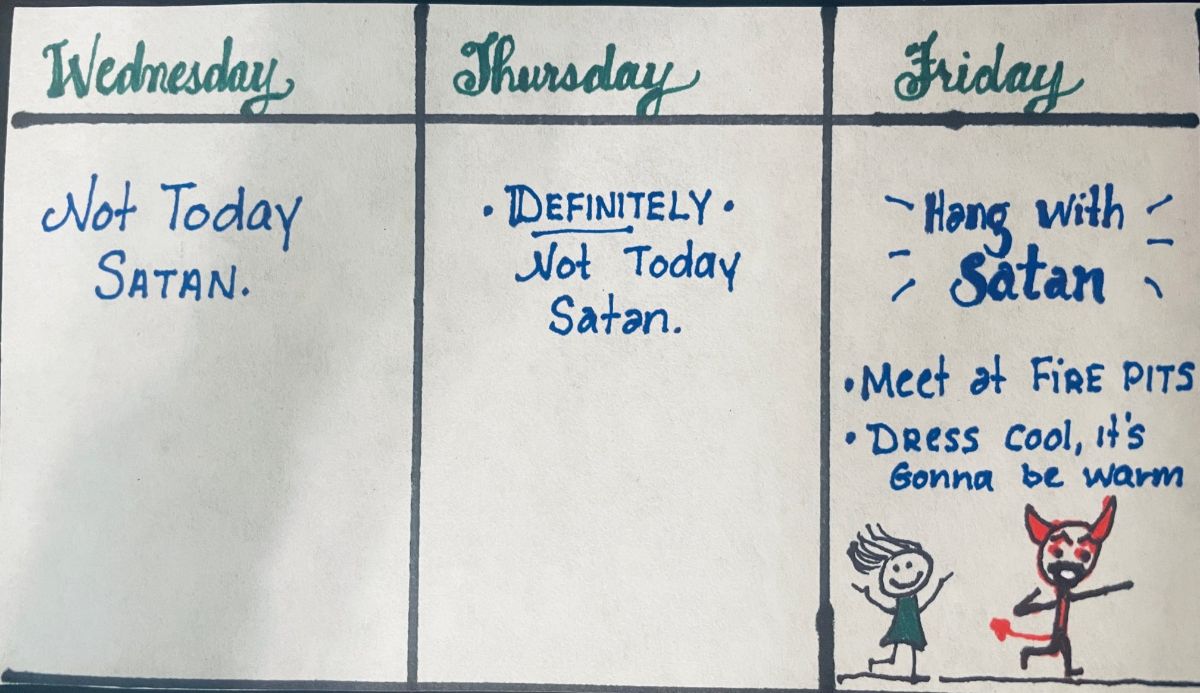 Wednesday
Not Today
SATAN.
Thursday
• DEFINITELY •
Not Today
Satan.
Friday
Hang with
Satan
• Meet at FiRE PITS
• DRESS cool, it's
Gonna be warm